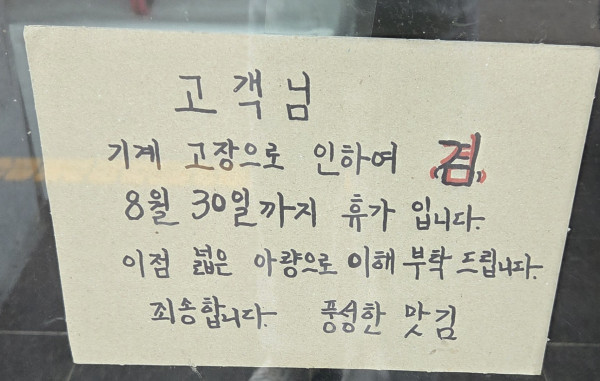 고객님
기계 고장으로 인하여 겸
8월 30일까지 휴가 입니다.
이점 넓은 아량으로 이해 부탁 드립니다.
죄송합니다. 풍성한 맛김